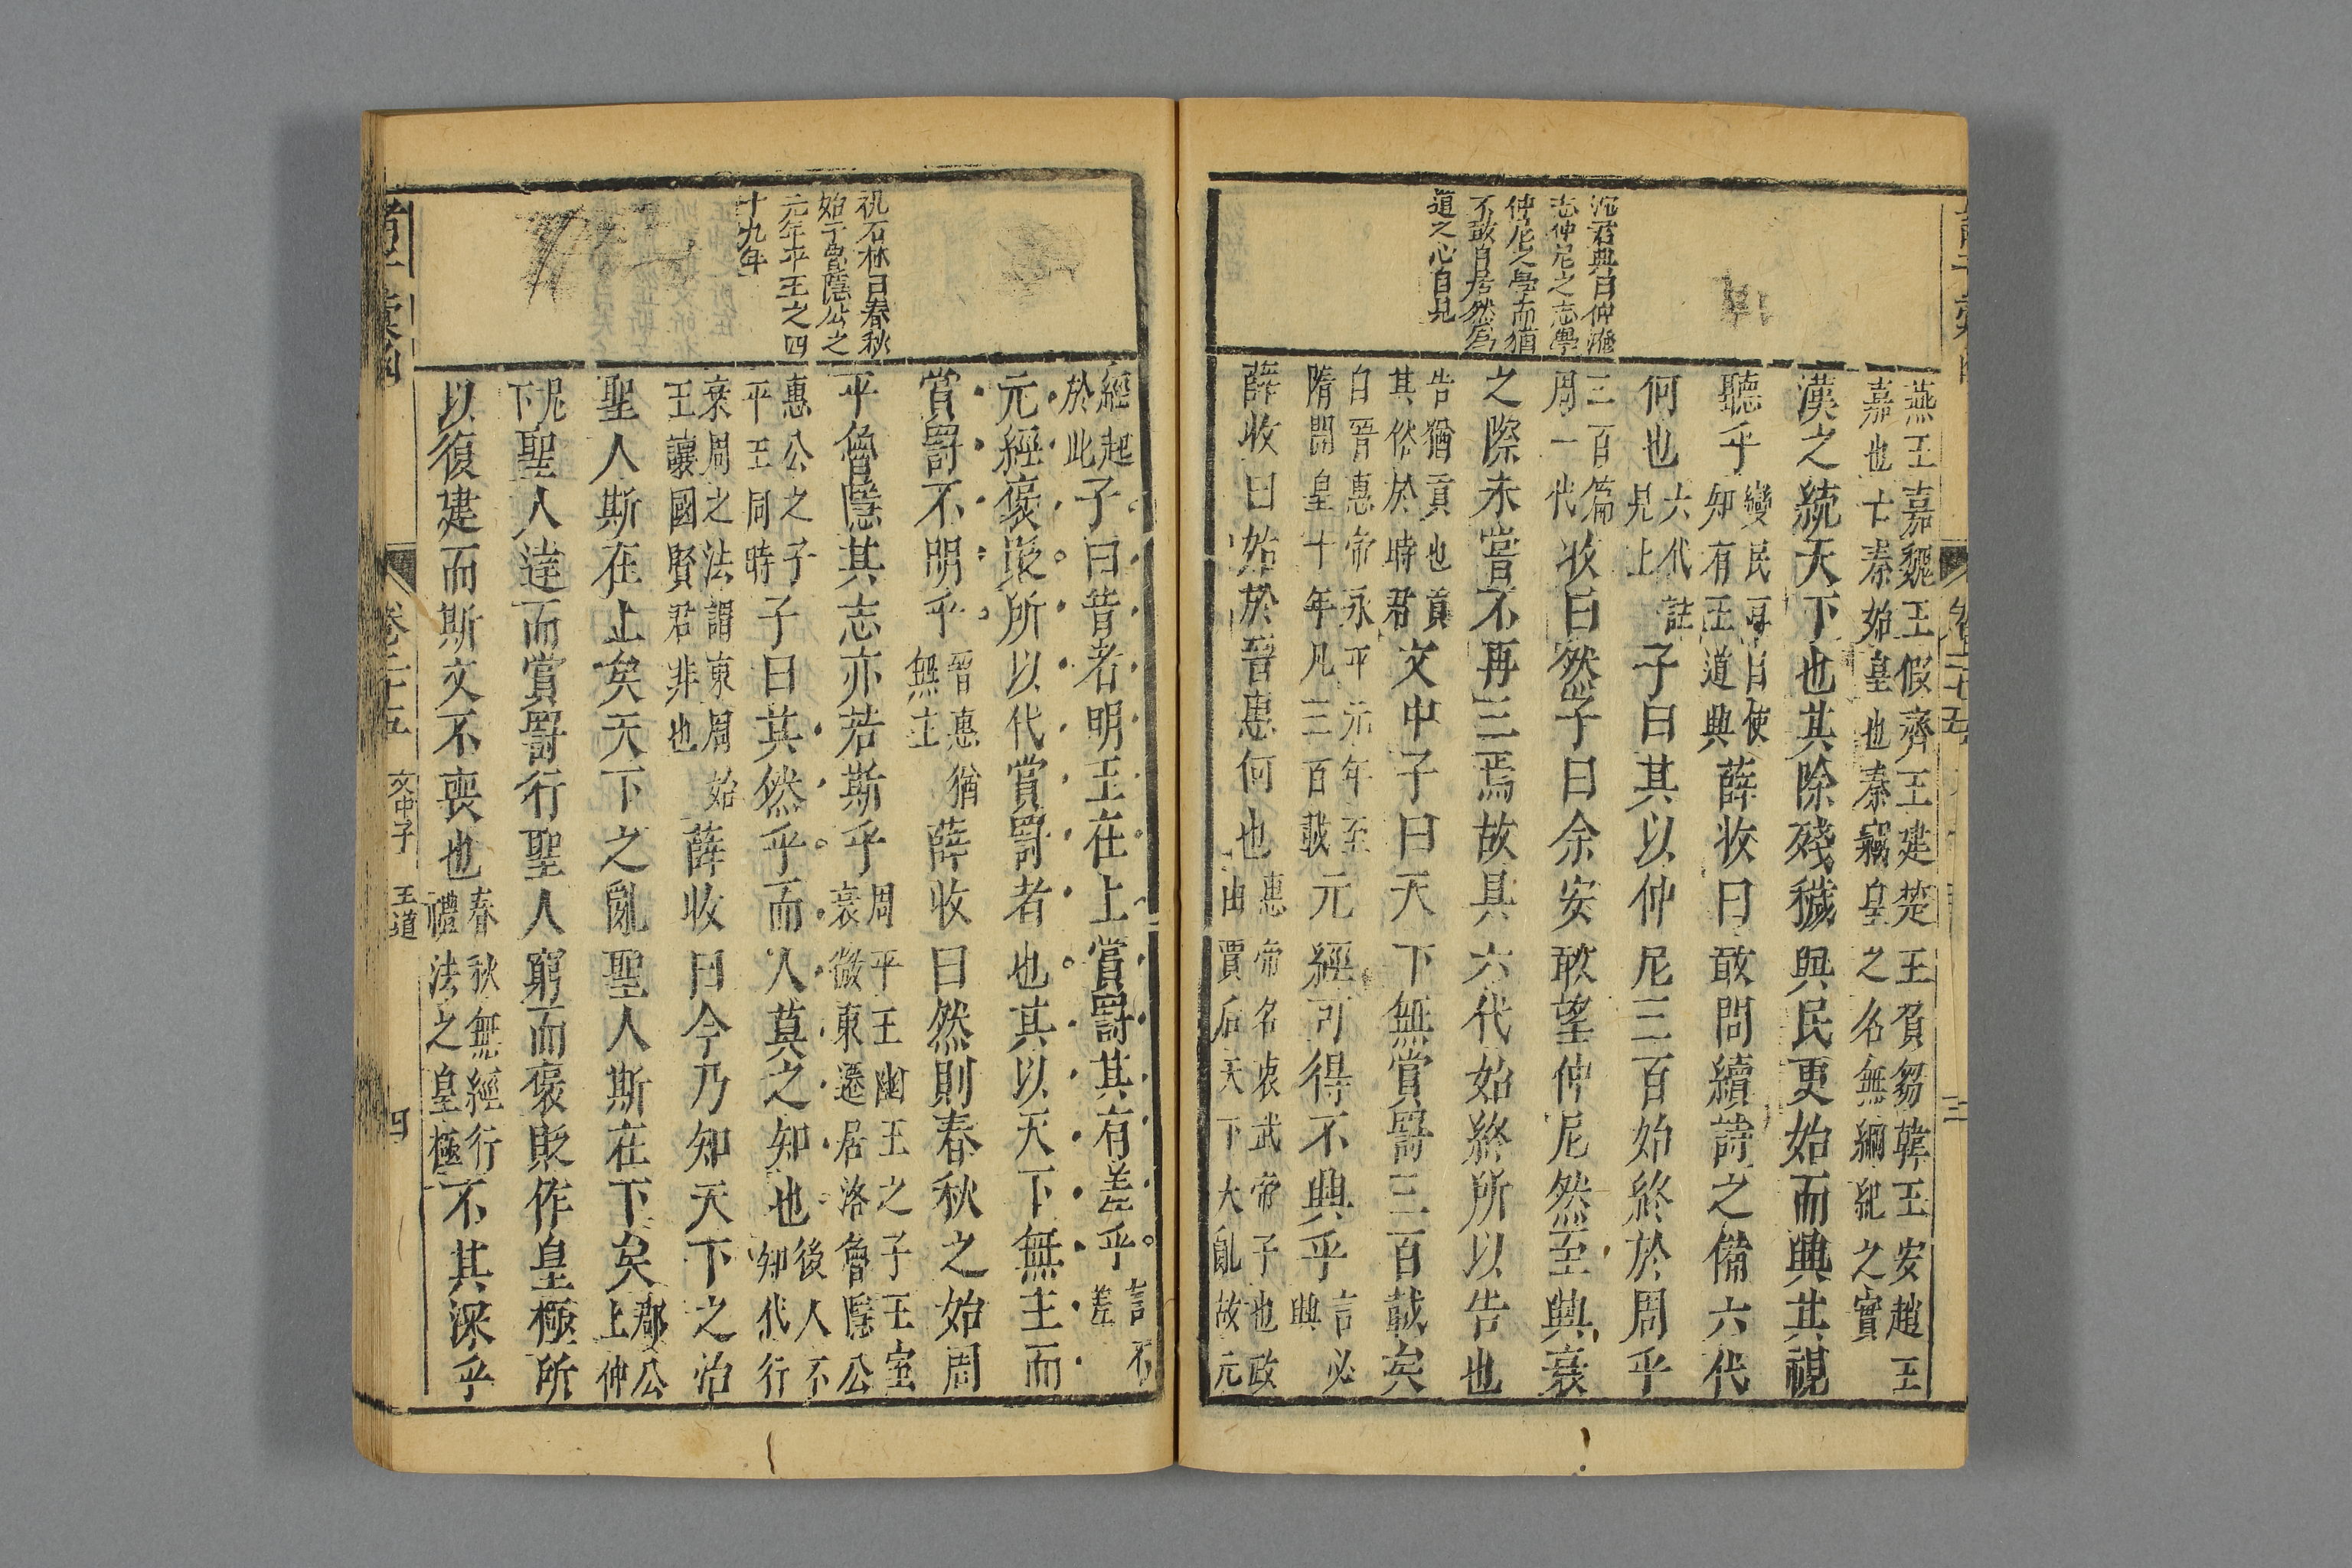 沈君典曰仲淹
志仲尼之志學
仲尼之學而猶
不敢自居然爲
道之心自見
燕王嘉魏王假齊王建楚王負芻韓王安趙王
嘉也亡秦始皇也秦竊皇之名無綱紀之實
漢之統天下也其除殘穢與民更始而興其視
聽乎變民耳目使知有王道興薛收曰敢問續詩之備六代
何也六代註見上子曰其以仲尼三百始終於周乎
三百篇周一代收曰然子曰余安敢望仲尼然至興衰
之際未嘗不再三焉故具六代始終所以告也
告猶貢也貢其俗於時君文中子曰天下無賞罰三百載矣
自晉惠帝永平元年至隋開皇十年凡三百載元經可得不興乎言必興
薛收曰始於晉惠何也惠帝名衷武帝子也政由賈后天下大亂故元
祝石林曰春秋
始于魯隱公之
元年平王之四
十九年
經起於此子曰昔者明王在上賞罰其有差乎言不差
元經褒貶所以代賞罰者也其以天下無主而
賞罰不明乎晉惠猶無主薛收曰然則春秋之始周
平魯隱其志亦若斯乎周平王幽王之子王室衰微東遷居洛魯隱公
惠公之子平王同時子曰其然乎而人莫之知也後人不知代行
衰周之法謂東周始王讓國賢君非也薛收曰今乃知天下之治
聖人斯在上矣天下之亂聖人斯在下矣郟公上仲
尼下聖人達而賞罰行聖人窮而褒貶作皇極所
以復建而斯文不喪也春秋無經行禮法之皇極不其深乎
卷二十五 文中子 王道 四